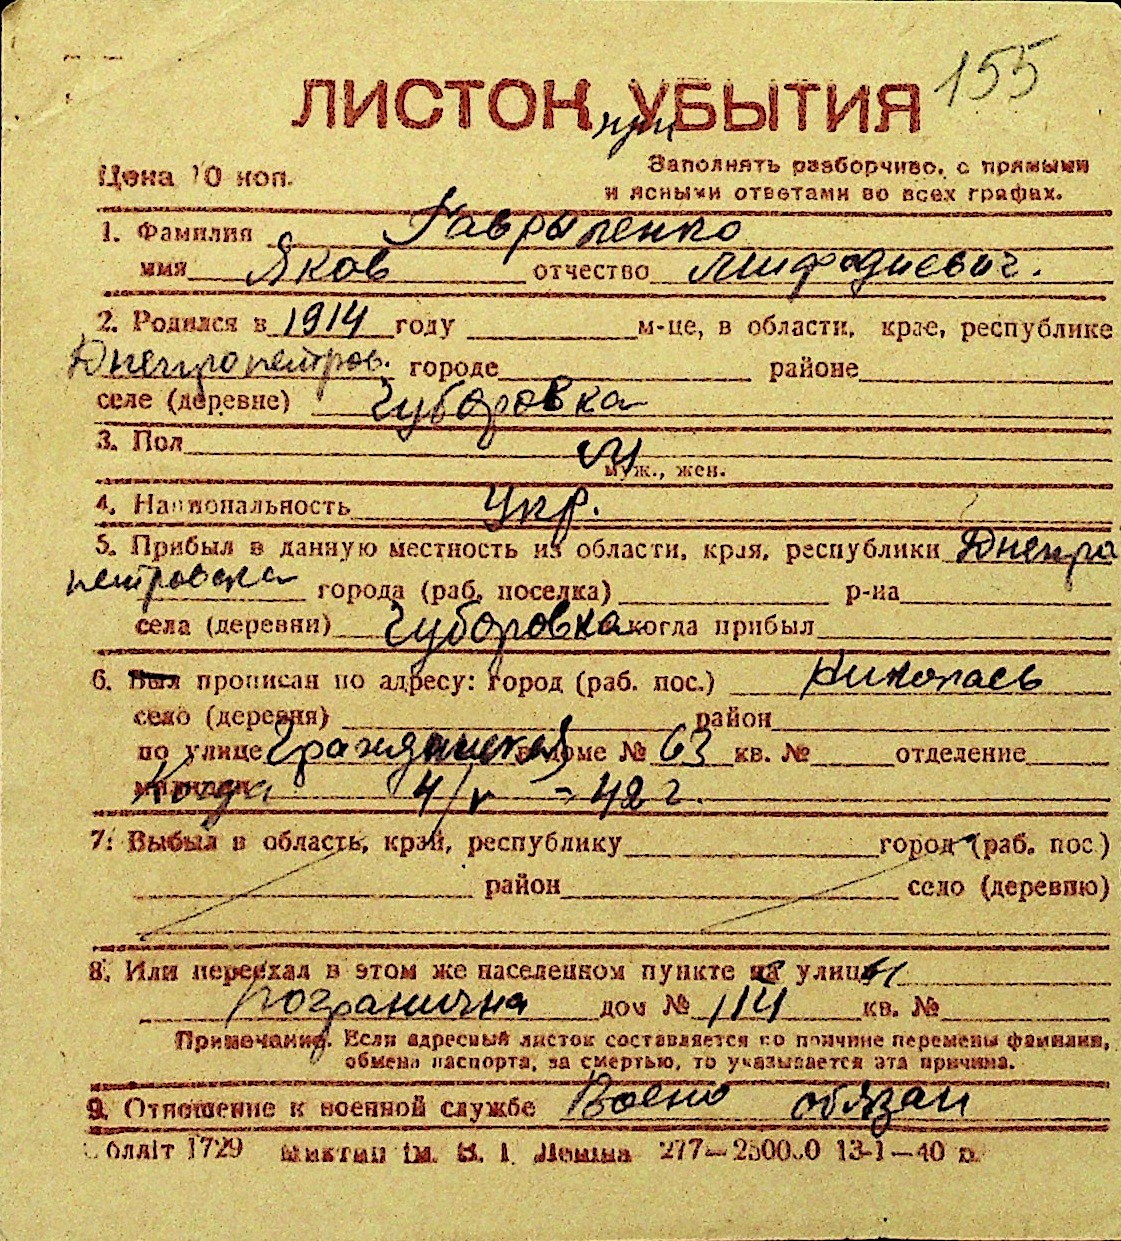 155
ЛИСТОК при УБЫТИЯ
Цена 10 коп.
Заполнять разборчиво, с прямыми
и ясными ответами во всех графах.
1. Фамилия Гавриленко
имя Яков отчество Мифодиевич.
2. Родился в 1914 году м-це, в области, крае, республике
Днепропетров. городе районе
селе (деревне) Губоровка
3. Пол М
муж., жен.
4. Национальность Укр.
5. Прибыл в данную местность из области, края, республики Днепро
петровска города (раб. поселка) р-на
села (деревни) Губоровка когда прибыл
6. Был прописан по адресу: город (раб. пос.) Николаев
село (деревня) район
по улице Гражданской в доме № 63 кв. № отделение
милиции Когда 4/V - 42 г.
7. Выбыл в область, край, республику город (раб. пос.)
район село (деревню)
8. Или переехал в этом же населенном пункте на улицы
Погранична дом № 114 кв. №
Примечание. Если адресный листок составляется по причине перемены фамилии,
обмена паспорта, за смертью, то указывается эта причина.
9. Отношение к военной службе Воено обязан
облліт 1729 ім. В. І. Леніна 277—250000 13-1—40 р.